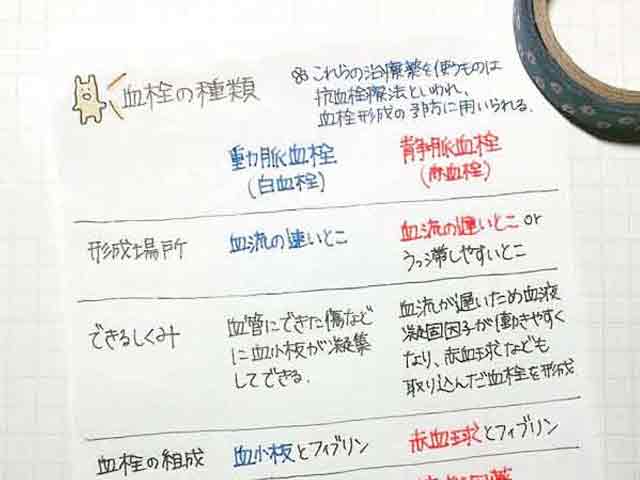 血栓の種類
※これらの治療薬を使うものは
抗血栓療法といわれ、
血栓形成の予防に用いられる.
動脈血栓 静脈血栓
(白血栓) (赤血栓)
形成場所 血流の速いとこ 血流の遅いとこ or
うっ滞しやすいとこ
できるしくみ 血管にできた傷など
に血小板が凝集
してできる.
血流が遅いため血液
凝固因子が働きやすく
なり、赤血球なども
取り込んだ血栓を形成
血栓の組成 血小板とフィブリン 赤血球とフィブリン